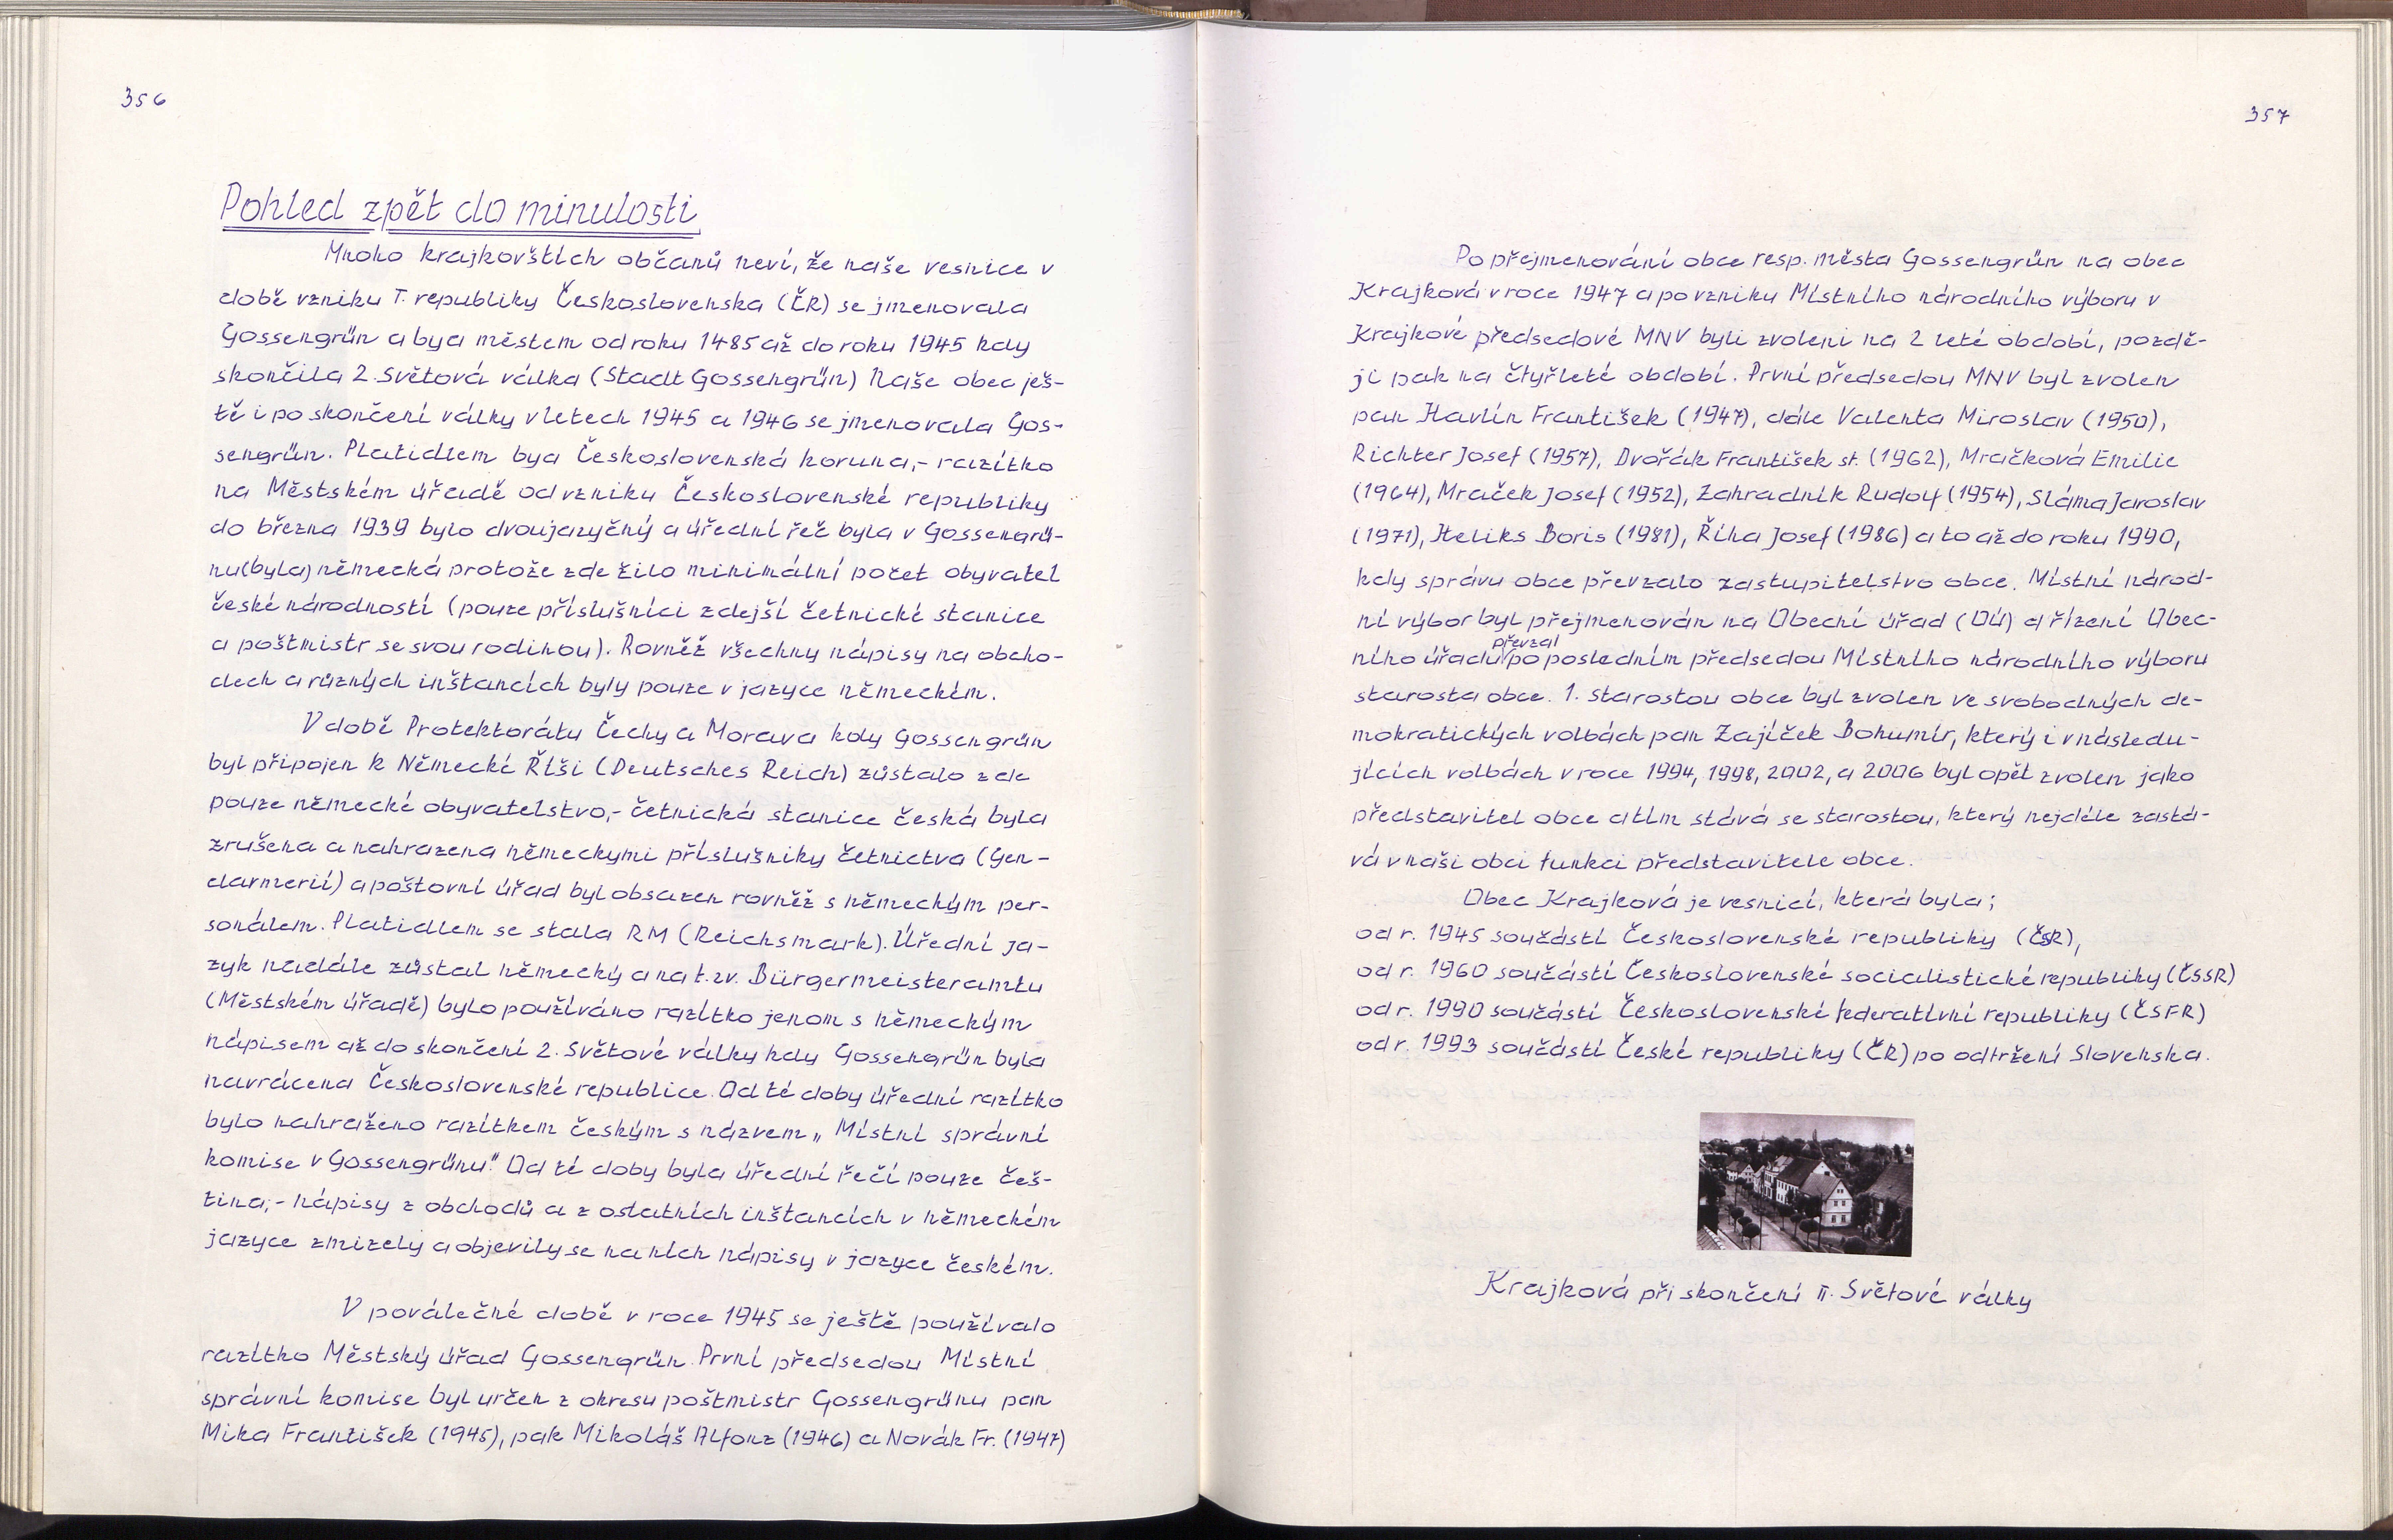 356
Pohled zpět do minulosti
Mnoho krajkovštích občanů neví, že naše vesnice v
době vzniku I. republiky Československa (ČR) se jmenovala
Gossengrün a bya městem od roku 1485 až do roku 1945 kdy
skončila 2. Světová válka (Stadt Gossengrün) Naše obec ješ-
tě i po skončení války v letech 1945 a 1946 se jmenovala Gos-
sengrün. Platidlem bya Československá koruna,- razítko
na Městském úřadě od vzniku Československé republiky
do března 1939 bylo dvoujazyčný a úřední řeč byla v Gossengrü-
nu (byla) německá protože zde žilo minimální počet obyvatel
české národnosti (pouze příslušníci zdejší četnické stanice
a poštmistr se svou rodinou). Rovněž všechny nápisy na obcho-
dech a různých inštancích byly pouze v jazyce německém.
V době Protektorátu Čechy a Morava kdy Gossengrün
byl připojen k Německé Říši (Deutsches Reich) zůstalo zde
pouze německé obyvatelstvo,- četnická stanice česká byla
zrušena a nahrazena německymi příslušniky četnictva (Gen-
darmerií) a poštovní úřad byl obsazen rovněž s německým per-
sonálem. Platidlem se stala RM (Reichsmark). Úřední ja-
zyk nadále zůstal německý a na t.zv. Bürgermeisteramtu
(Městském úřadě) bylo používáno razítko jenom s německým
nápisem až do skončení 2. Světové války kdy Gossengrün byla
navrácena Československé republice. Od té doby úřední razítko
bylo nahraženo razítkem českým s názvem „Místní správní
komise v Gossengrünu". Od té doby byla úřední řečí pouze češ-
tina,- nápisy z obchodů a z ostatních inštancích v německém
jazyce zmizely a objevily se na nich nápisy v jazyce českém.
V poválečné době v roce 1945 se ještě používalo
razítko Městský úřad Gossengrün. První předsedou Místní
správní komise byl určen z okresu poštmistr Gossengrünu pan
Mika František (1945), pak Mikoláš Alfonz (1946) a Novák Fr. (1947)
357
Po přejmenování obce resp. města Gossengrün na obec
Krajková v roce 1947 a po vzniku Místního národního výboru v
Krajkové předsedové MNV byli zvoleni na 2 leté období, pozdě-
ji pak na čtyřleté období. První předsedou MNV byl zvolen
pan Havlín František (1947), dále Valenta Miroslav (1950),
Richter Josef (1957), Dvořák František st. (1962), Mračková Emilie
(1964), Mraček Josef (1952), Zahradník Rudolf (1954), Sláma Jaroslav
(1971), Heliks Boris (1981), Říha Josef (1986) a to až do roku 1990,
kdy správu obce převzalo zastupitelstvo obce. Místní národ-
ní výbor byl přejmenován na Obecní úřad (OÚ) a řízení Obec-
převzal
ního úřadu po posledním předsedou Místního národního výboru
starosta obce. 1. starostou obce byl zvolen ve svobodných de-
mokratických volbách pan Zajíček Bohumír, který i v následu-
jících volbách v roce 1994, 1998, 2002, a 2006 byl opět zvolen jako
představitel obce a tím stává se starostou, který nejdéle zastá-
vá v naši obci funkci představitele obce.
Obec Krajková je vesnicí, která byla;
od r. 1945 součástí Československé republiky (ČSR),
od r. 1960 součástí Československé socialistické republiky (ČSSR)
od r. 1990 součástí Československé federativní republiky (ČSFR)
od r. 1993 součástí České republiky (ČR) po odtržení Slovenska.
Krajková při skončení II. Světové války